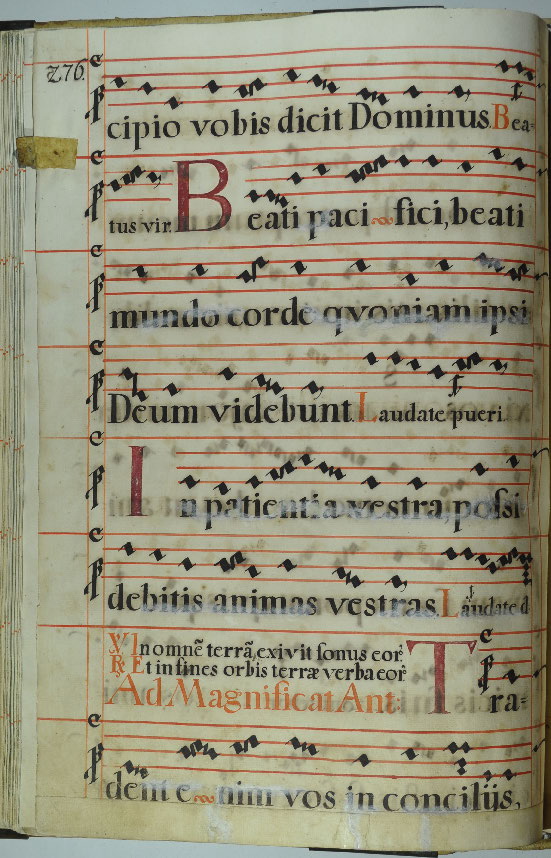 276.
cipio vobis dicit Dominus. Bea=
tus vir. Beati paci fici, beati
mundo corde qvoniam ipsi
Deum videbunt. Laudate pueri.
In patientia vestra, poſsi
debitis animas vestras. Laudate d
℣. In omnē terrā, exivit ſonus eor̃
℟. Et in fines orbis terræ verba eor̃
Ad Magnificat Ant: Tra=
dent e nim vos in concilijs,